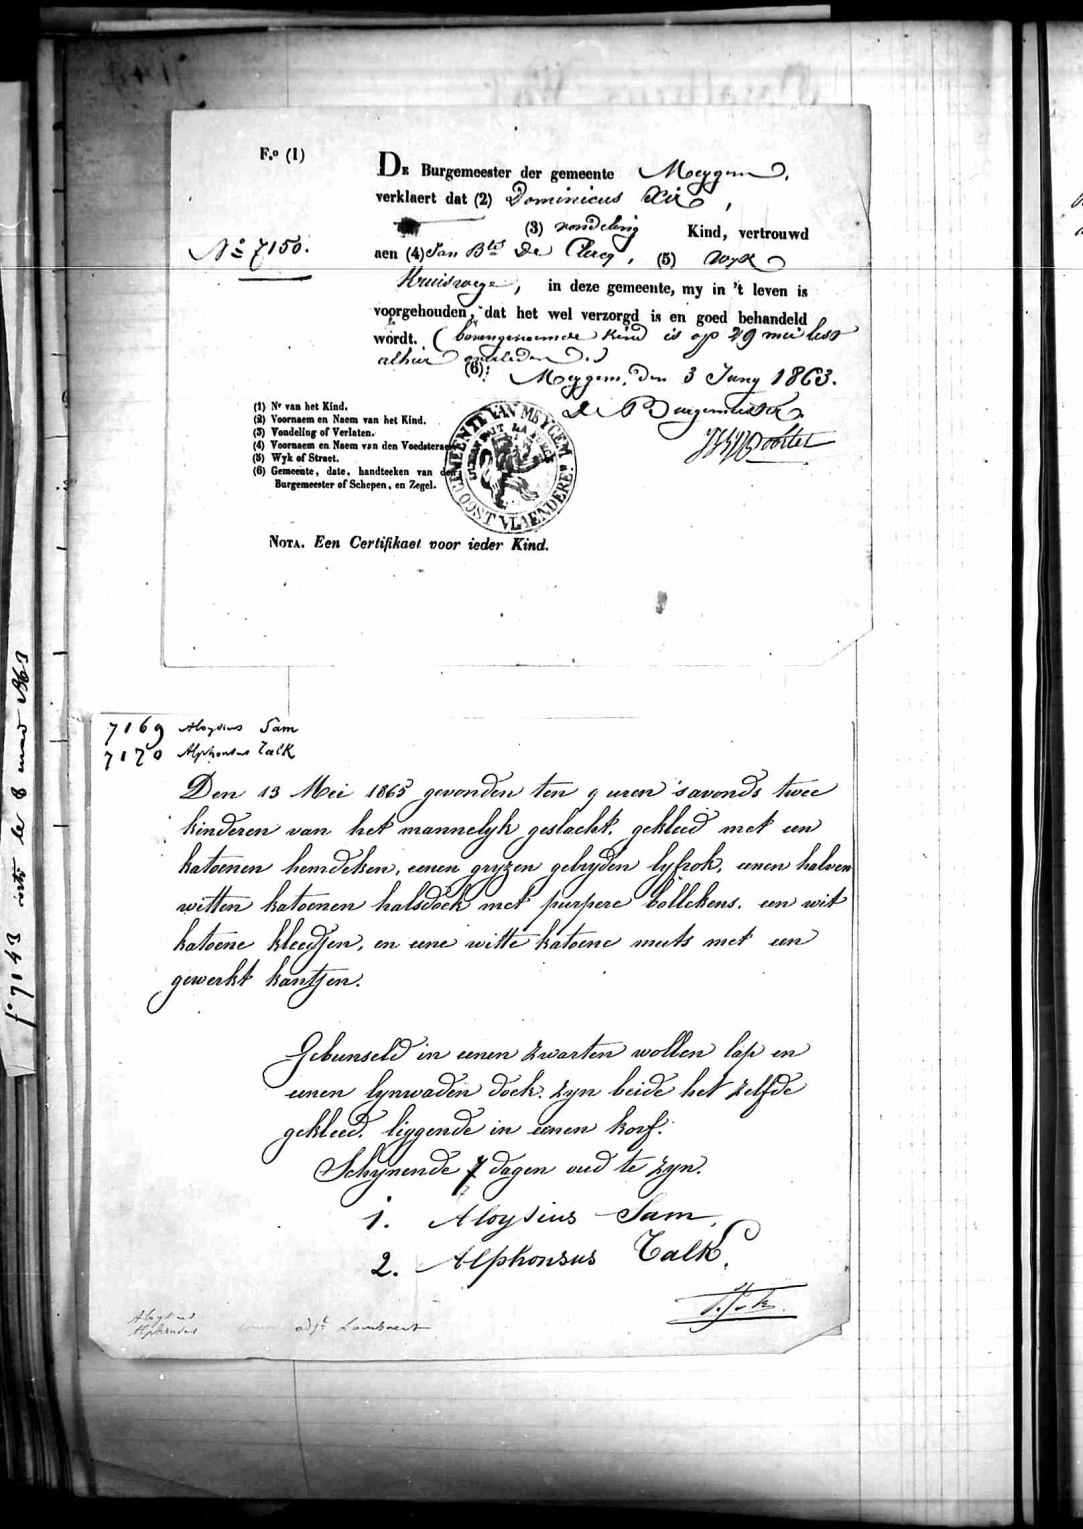 F.º (1)
DE Burgemeester der gemeente Meygem,
verklaert dat (2) Dominicus Xix,
(3) vondeling Kind, vertrouwd
Nº 7150.
aen (4) Jan Bte De Clercq, (5) Wyk
Kruiswege, in deze gemeente, my in 't leven is
voorgehouden, dat het wel verzorgd is en goed behandeld
wordt. (bovengenoemde kind is op 29 mei lest
alhier overleden.)
(6): Meygem, den 3 Juny 1863.
de Burgemeester,
(1) Nr van het Kind.
(2) Voornaem en Naem van het Kind.
(3) Vondeling of Verlaten.
(4) Voornaem en Naem van den Voedsteraer
(5) Wyk of Straet.
(6) Gemeente, date, handteeken van den
Burgemeester of Schepen, en Zegel.
GEMEENTE VAN MEYGEM
OOST VLAENDEREN
NOTA. Een Certifikaet voor ieder Kind.
7169 Aloysius Sam
7170 Alphonsus Talk
Den 13 Mei 1863 gevonden ten 9 uren s'avonds twee
kinderen van het mannelyk geslacht. gekleed met een
katoenen hemdeken, eenen gryzen gebryden lyfrok, eenen halven
witten katoenen halsdoek met purpere bollekens. een wit
katoene kleedjen, en eene witte katoene muts met een
gewerkt kantjen.
Gebunseld in eenen zwarten wollen lap en
eenen lynwaden doek. zyn beide het zelfde
gekleed. liggende in eenen korf.
Schynende 7 dagen oud te zyn.
1. Aloysius Sam,
2. Alphonsus Talk.
Aloysius
Alphonsus
adjt Lambaert
f. 7143
le 8 1863